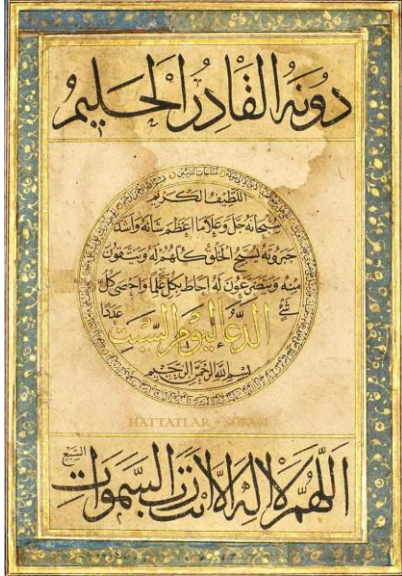 دُونَهُ القَادِرُ الحَلِيمُ
اللَّطِيفُ الكَرِيمُ
سُبْحَانَهُ جَلَّ وَعَلَا مَا أَعْظَمَ شَأنَهُ وَأَشَدَّ
جَبَرُوتَهُ يُسَبِّحُ الخَلْقُ كُلُّهُمْ لَهُ وَيَشْفَقُونَ
مِنْهُ وَيَتَضَرَّعُونَ لَهُ أَحَاطَ بِكُلِّ عِلْمًا وَأَحْصَى كُلَّ
شَيْءٍ عَدَدًا
الدُّعَاءُ لِيَوْمِ السَّبْتِ
بِسْمِ اللَّهِ الرَّحْمَنِ الرَّحِيمِ
HATTATLAR · SOFASI
اللَّهُمَّ لَا إِلَهَ إِلَّا أَنْتَ رَبَّ السَّمَوَاتِ السَّبْعِ